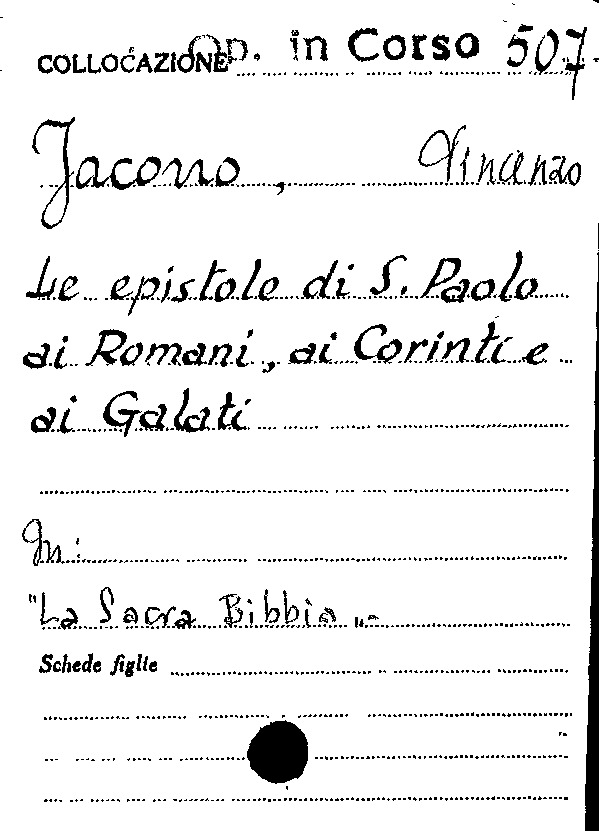 COLLOCAZIONE Op. in Corso 507
Jacono, Vincenzo
Le epistole di S. Paolo
ai Romani, ai Corinti e
ai Galati
In:
"La Sacra Bibbia„.-
Schede figlie